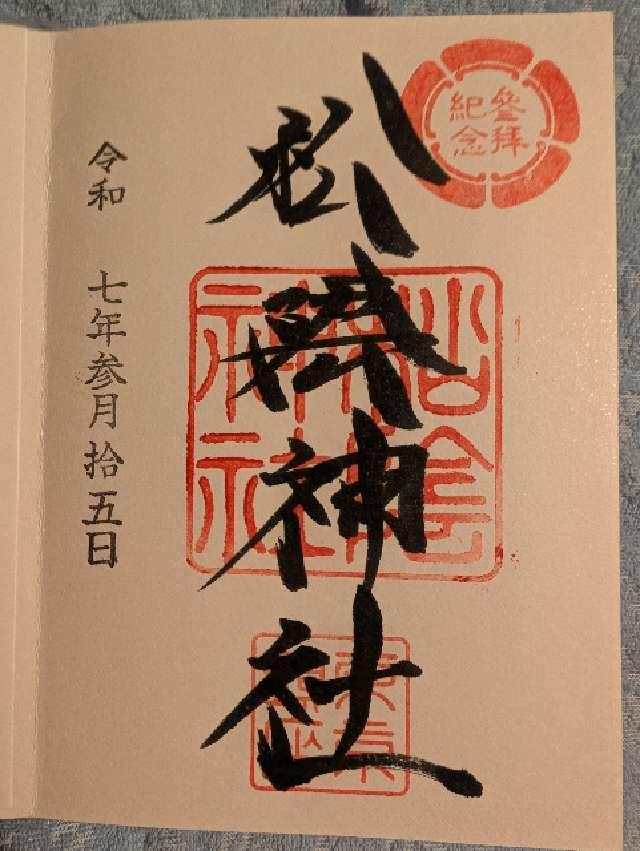 參拜
紀念
松陰神社
松陰
神社
東京
令和 七年参月拾五日